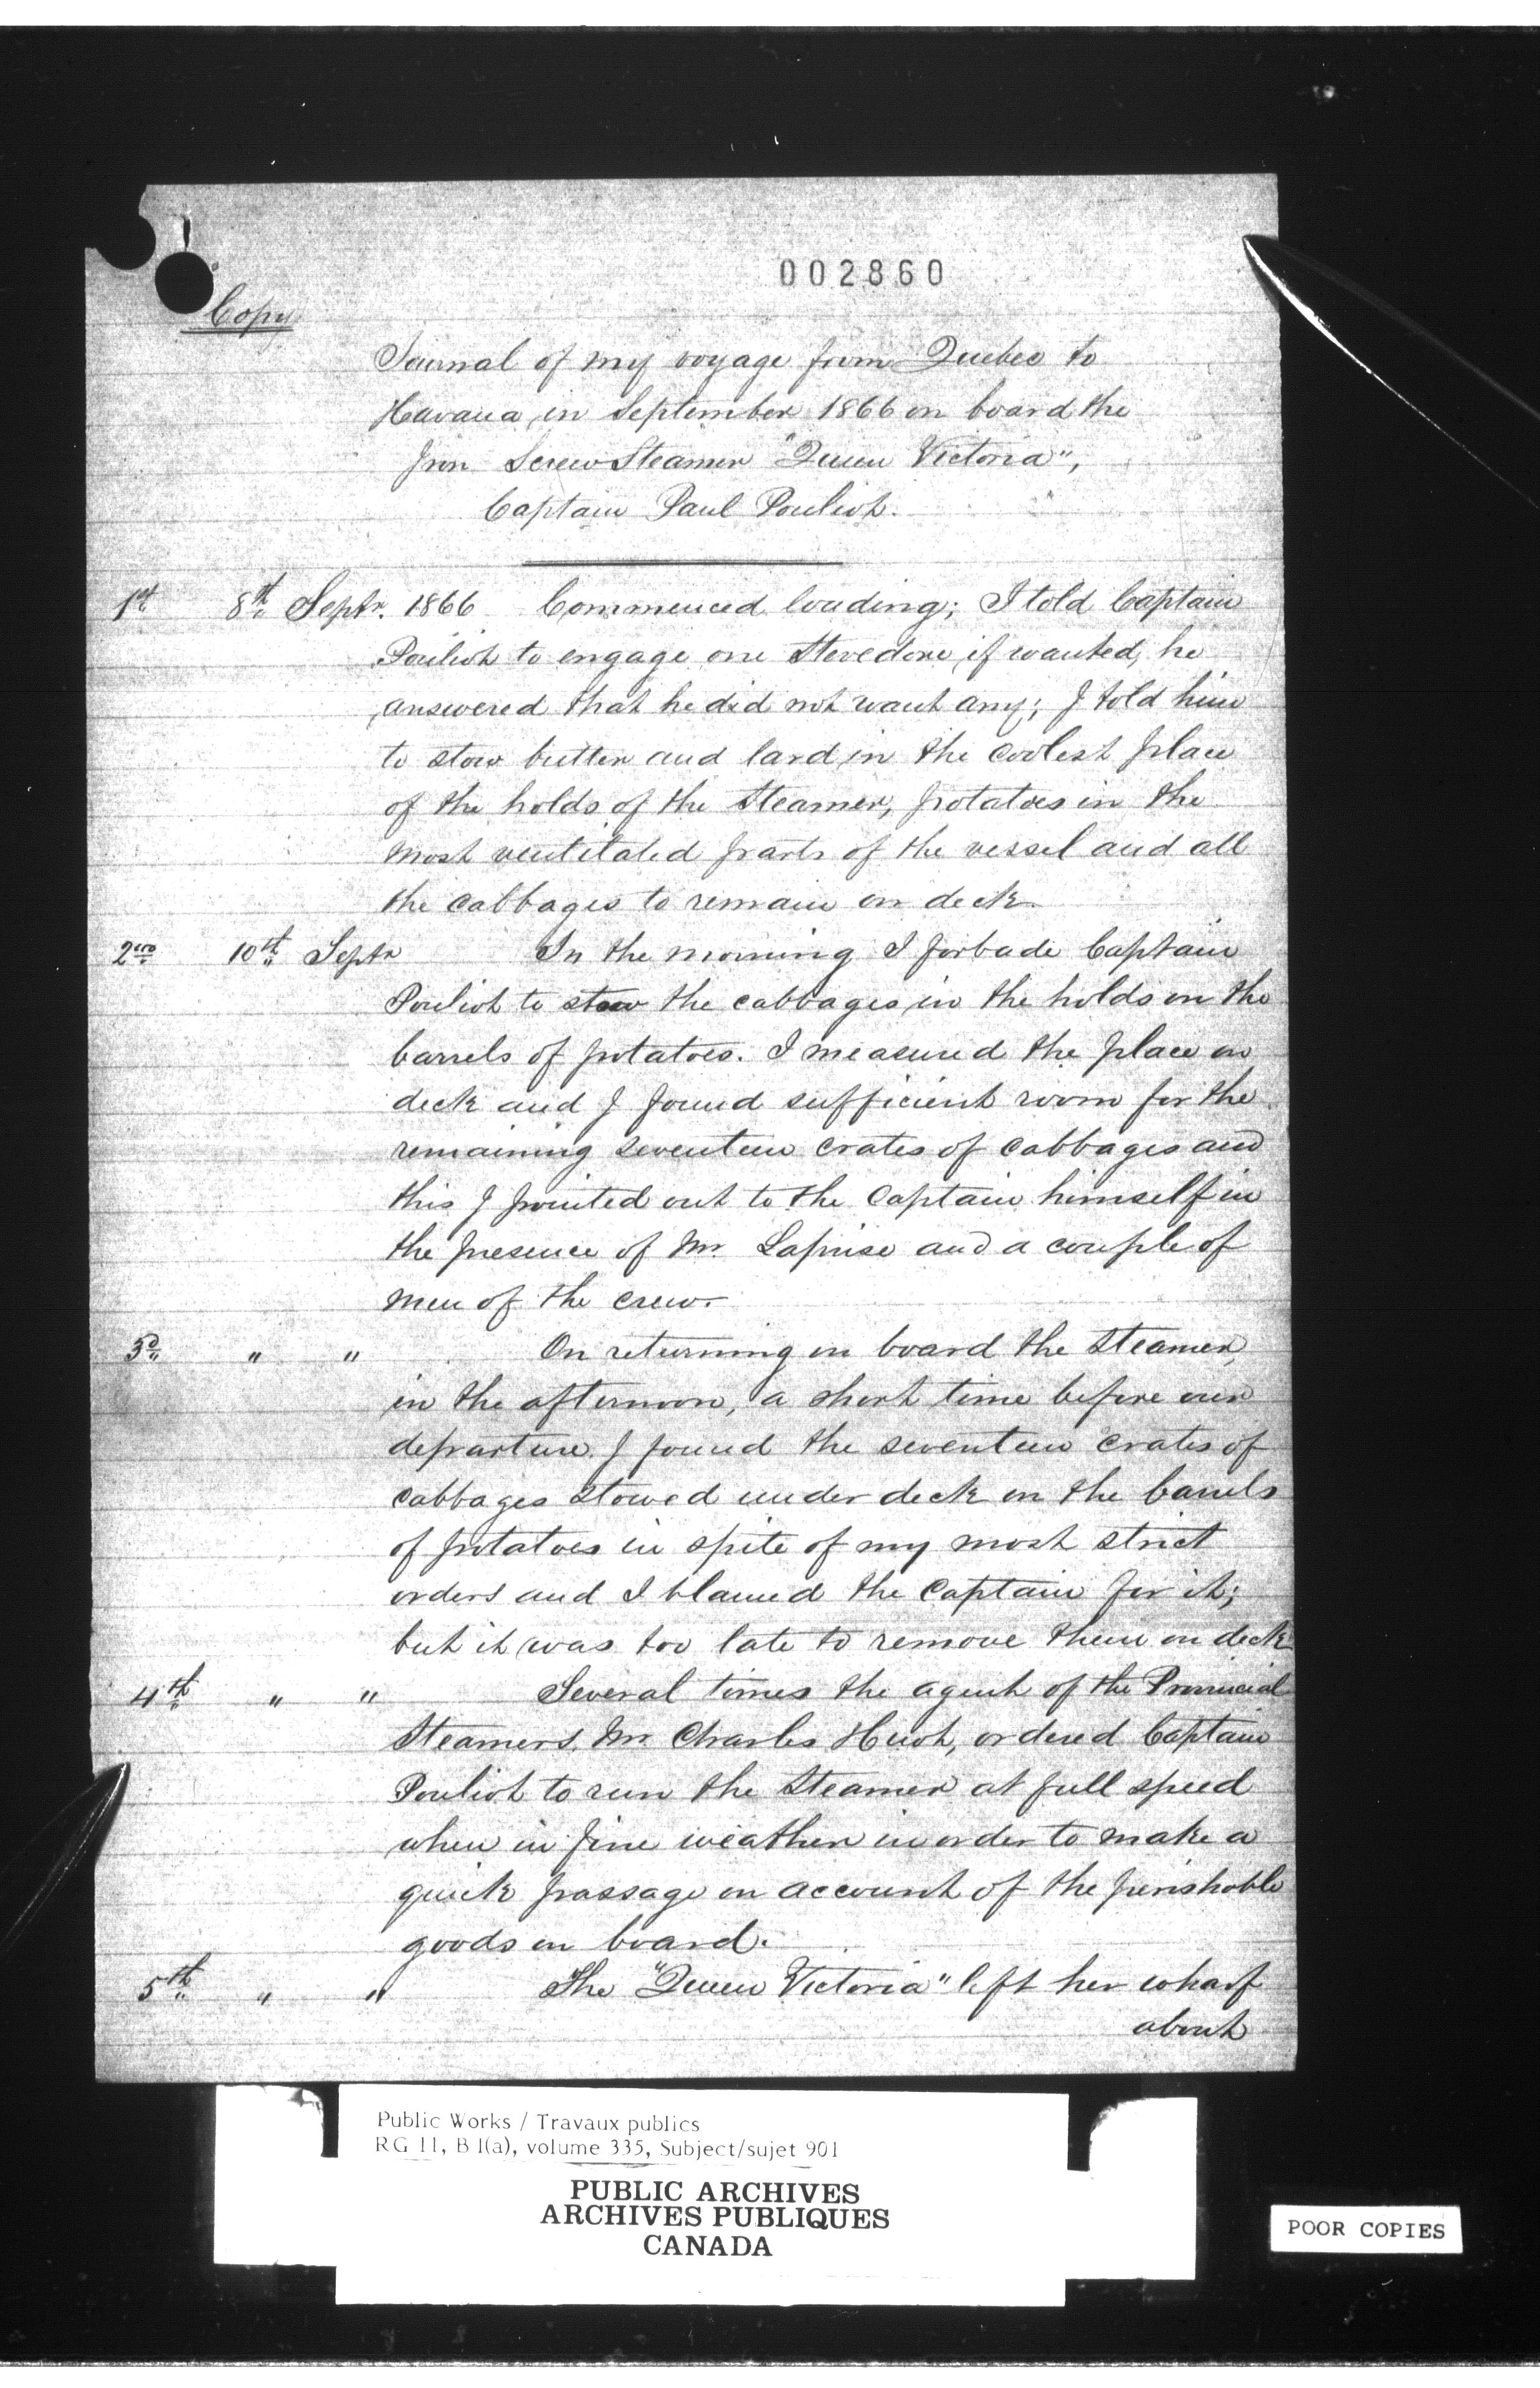 002860
Copy
Journal of my voyage from Quebec to
Havana, in September 1866 on board the
Iron Screw Steamer "Queen Victoria",
Captain Paul Pouliot.
1st 8th Septr. 1866 Commenced loading; I told Captain
Pouliot to engage one Stevedore, if wanted, he
answered that he did not want any; I told him
to stow butter and lard, in the coolest place
of the holds of the Steamer, potatoes in the
most ventilated parts of the vessel and all
the cabbages to remain on deck.
2nd 10th Septr In the morning I forbade Captain
Pouliot to stow the cabbages in the holds on the
barrels of potatoes. I measured the place on
deck and I found sufficient room for the
remaining seventeen crates of cabbages and
this I pointed out to the Captain himself in
the presence of Mr. Laprise and a couple of
men of the crew.
3d " " On returning on board the Steamer,
in the afternoon, a short time before our
departure I found the seventeen crates of
cabbages stowed under deck on the barrels
of potatoes in spite of my most strict
orders and I blamed the Captain for it;
but it was too late to remove them on deck
4th " " Several times the agent of the Provincial
Steamers, Mr. Charles Huot, ordered Captain
Pouliot to run the Steamer at full speed
when in fine weather in order to make a
quick passage on account of the perishable
goods on board.
5th " " The "Queen Victoria" left her wharf
about
Public Works / Travaux publics
RG 11, B 1(a), volume 335, Subject/sujet 901
PUBLIC ARCHIVES
ARCHIVES PUBLIQUES
CANADA
POOR COPIES